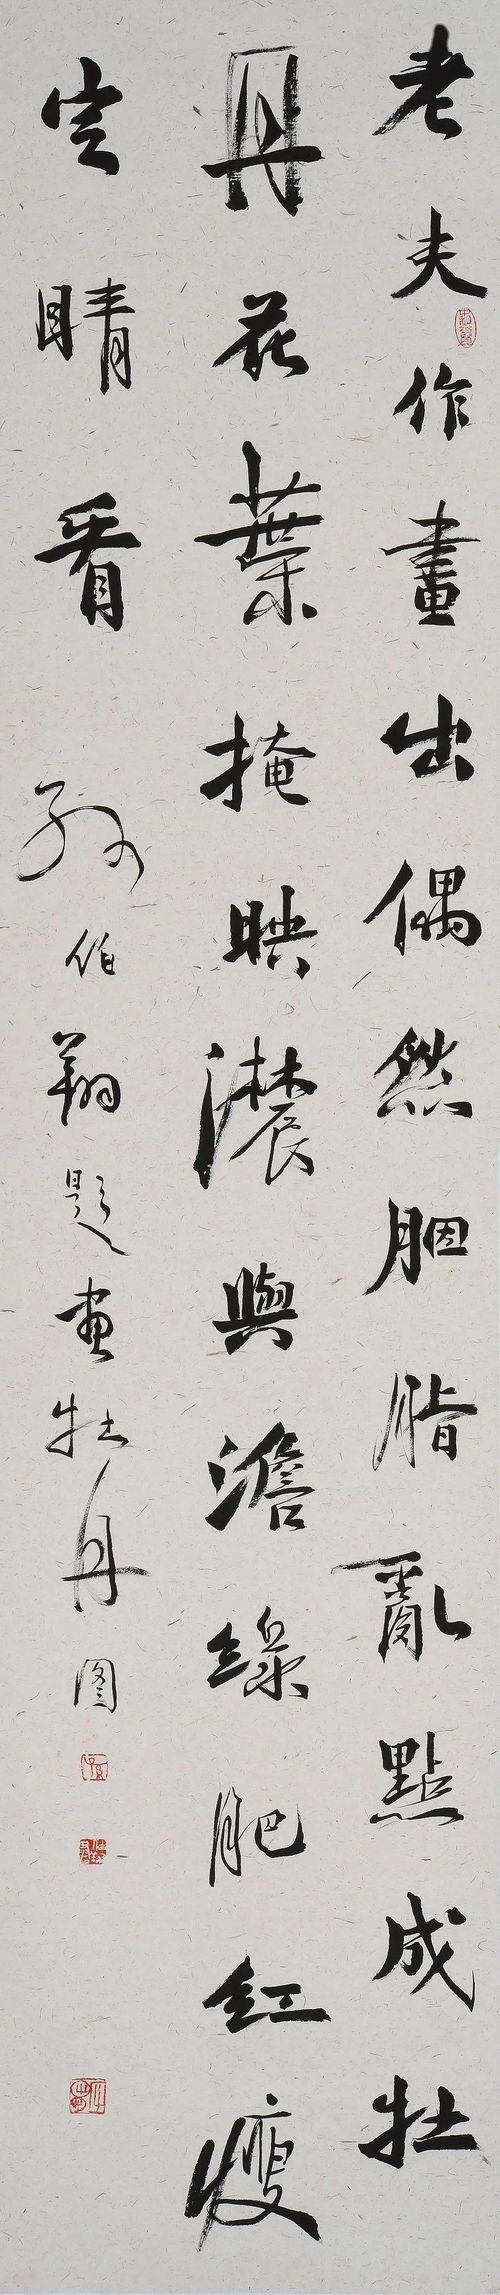 老夫作畫出偶然胭脂亂點成牡
丹花葉掩映濃與澹綠肥紅瘦
定睛看 孙伯翔題画牡丹图